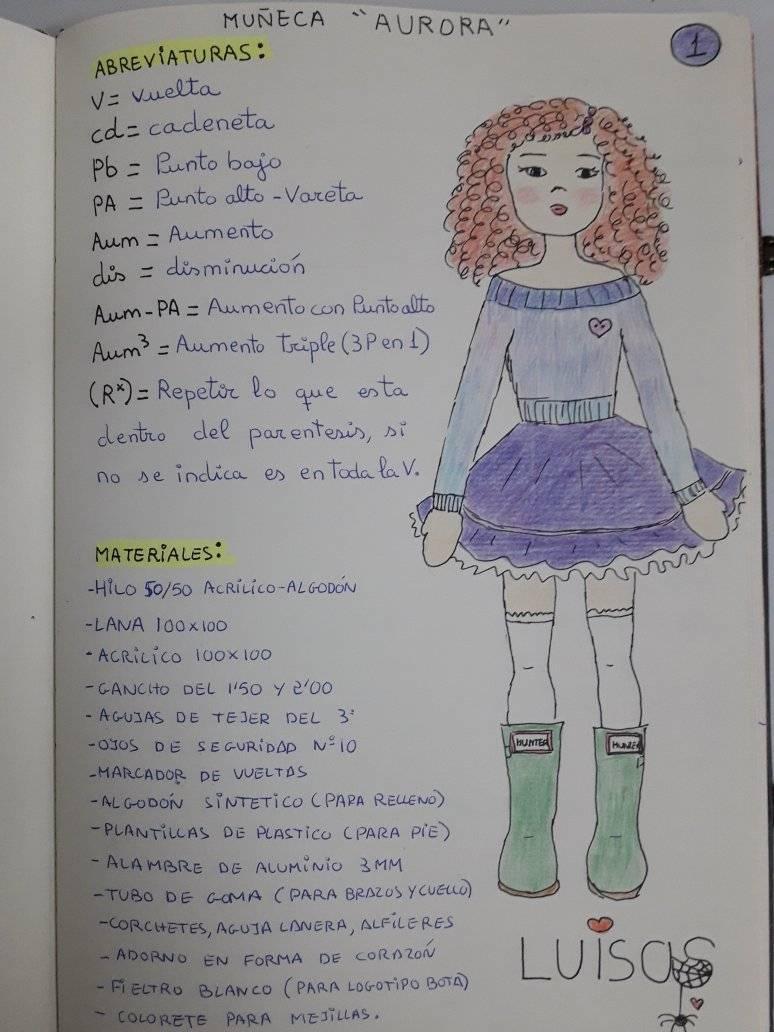 MUÑECA "AURORA"
1
ABREViATURAS:
V= vuelta
cd= cadeneta
Pb = Punto bajo
PA = Punto alto - Vareta
Aum = Aumento
dis = disminución
Aum-PA = Aumento con Punto alto
Aum³ = Aumento Triple (3P en 1)
(R*) = Repetir lo que esta
dentro del parentesis, si
no se indica es en toda la V.
MATERiALES:
-HiLO 50/50 ACRiLiCO-ALGODÓN
-LANA 100x100
-ACRiLiCO 100x100
-GANCHO DEL 1'50 Y 2'00
-AGUJAS DE TEJER DEL 3'
-OJOS DE SEGURiDAD Nº10
-MARCADOR DE VUELTAS
-ALGODÓN SiNTETiCO (PARA RELLENO)
-PLANTiLLAS DE PLASTiCO (PARA PiE)
-ALAMBRE DE ALUMiNiO 3MM
-TUBO DE GOMA (PARA BRAZOS Y CUELLO)
-CORCHETES, AGUJA LANERA, ALFiLERES
-ADORNO EN FORMA DE CORAZÓN
-FiELTRO BLANCO (PARA LOGOTiPO BOTA)
- COLORETE PARA MEJiLLAS.
HUNTER
HUNTER
LUiSOS